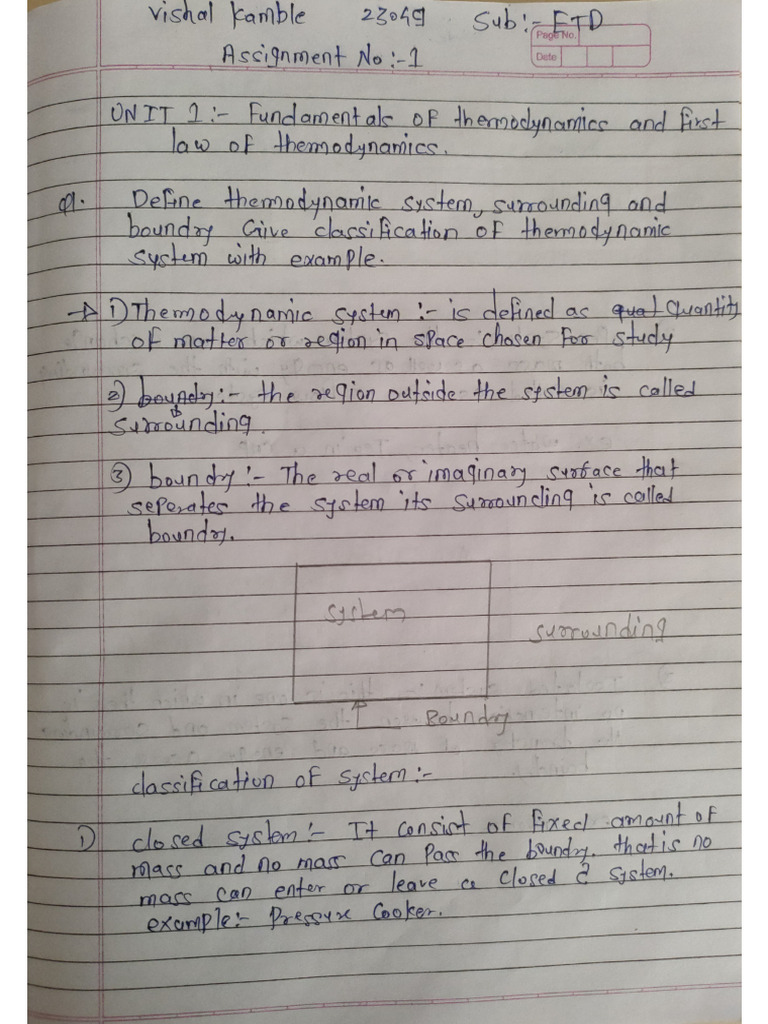 Vishal Kamble 23049 Sub:- FTD
Page No.
Date
Assignment No:-1
UNIT 1:- Fundamentals of thermodynamics and first
law of thermodynamics.
Q1. Define thermodynamic system, surrounding and
boundry Give classification of thermodynamic
system with example.
→ 1) Thermodynamic system :- is defined as quat Quantity
of matter or region in space chosen for study
2) boundry:- the region outside the system is called
Surrounding.
③ boundry :- The real or imaginary surface that
seperates the system its surrounding is called
boundry.
system
surrounding
Boundry
classification of system:-
1) closed system:- It consist of fixed amount of
mass and no mass can pass the boundry. that is no
mass can enter or leave a closed system.
example:- Pressure Cooker.